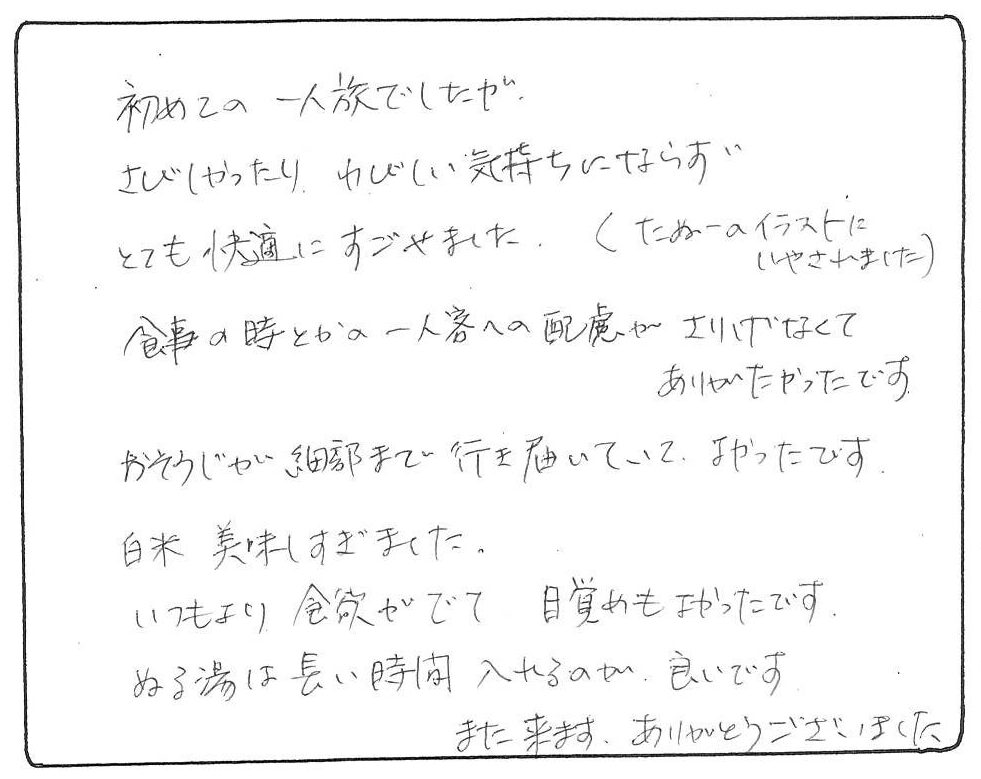 初めての 一人旅でしたが、
さびしかったり、わびしい気持ちにならず
とても快適にすごせました。 (たぬーのイラストに
いやされました)
食事の時とかの一人客への配慮が さりげなくて
ありがたかったです
おそうじが 細部まで 行き届いていて、よかったです。
白米 美味しすぎました。
いつもより 食欲がでて 目覚めもよかったです。
ぬる湯は長い時間 入れるのが、良いです
また来ます、ありがとうございました